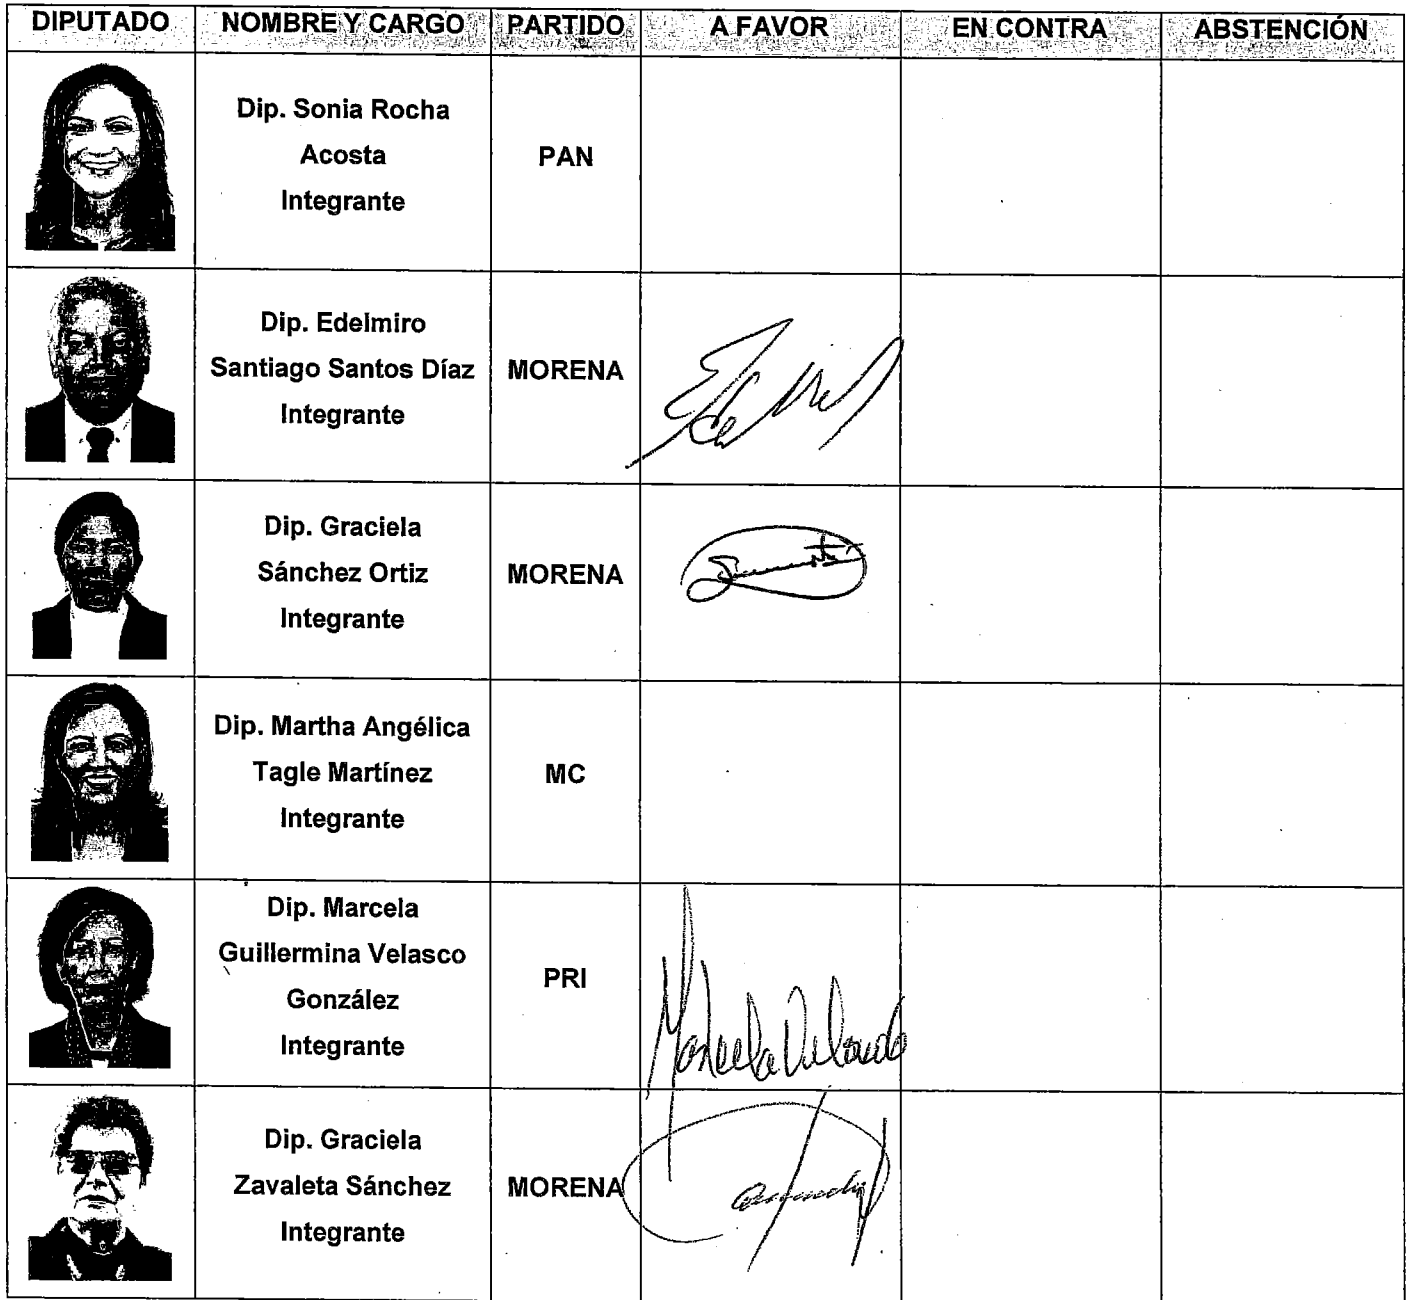 DIPUTADO NOMBRE Y CARGO PARTIDO A FAVOR EN CONTRA ABSTENCIÓN
Dip. Sonia Rocha
Acosta
Integrante
PAN
Dip. Edelmiro
Santiago Santos Díaz
Integrante
MORENA
Dip. Graciela
Sánchez Ortiz
Integrante
MORENA
Dip. Martha Angélica
Tagle Martínez
Integrante
MC
Dip. Marcela
Guillermina Velasco
González
Integrante
PRI
Marcela Velasco
Dip. Graciela
Zavaleta Sánchez
Integrante
MORENA